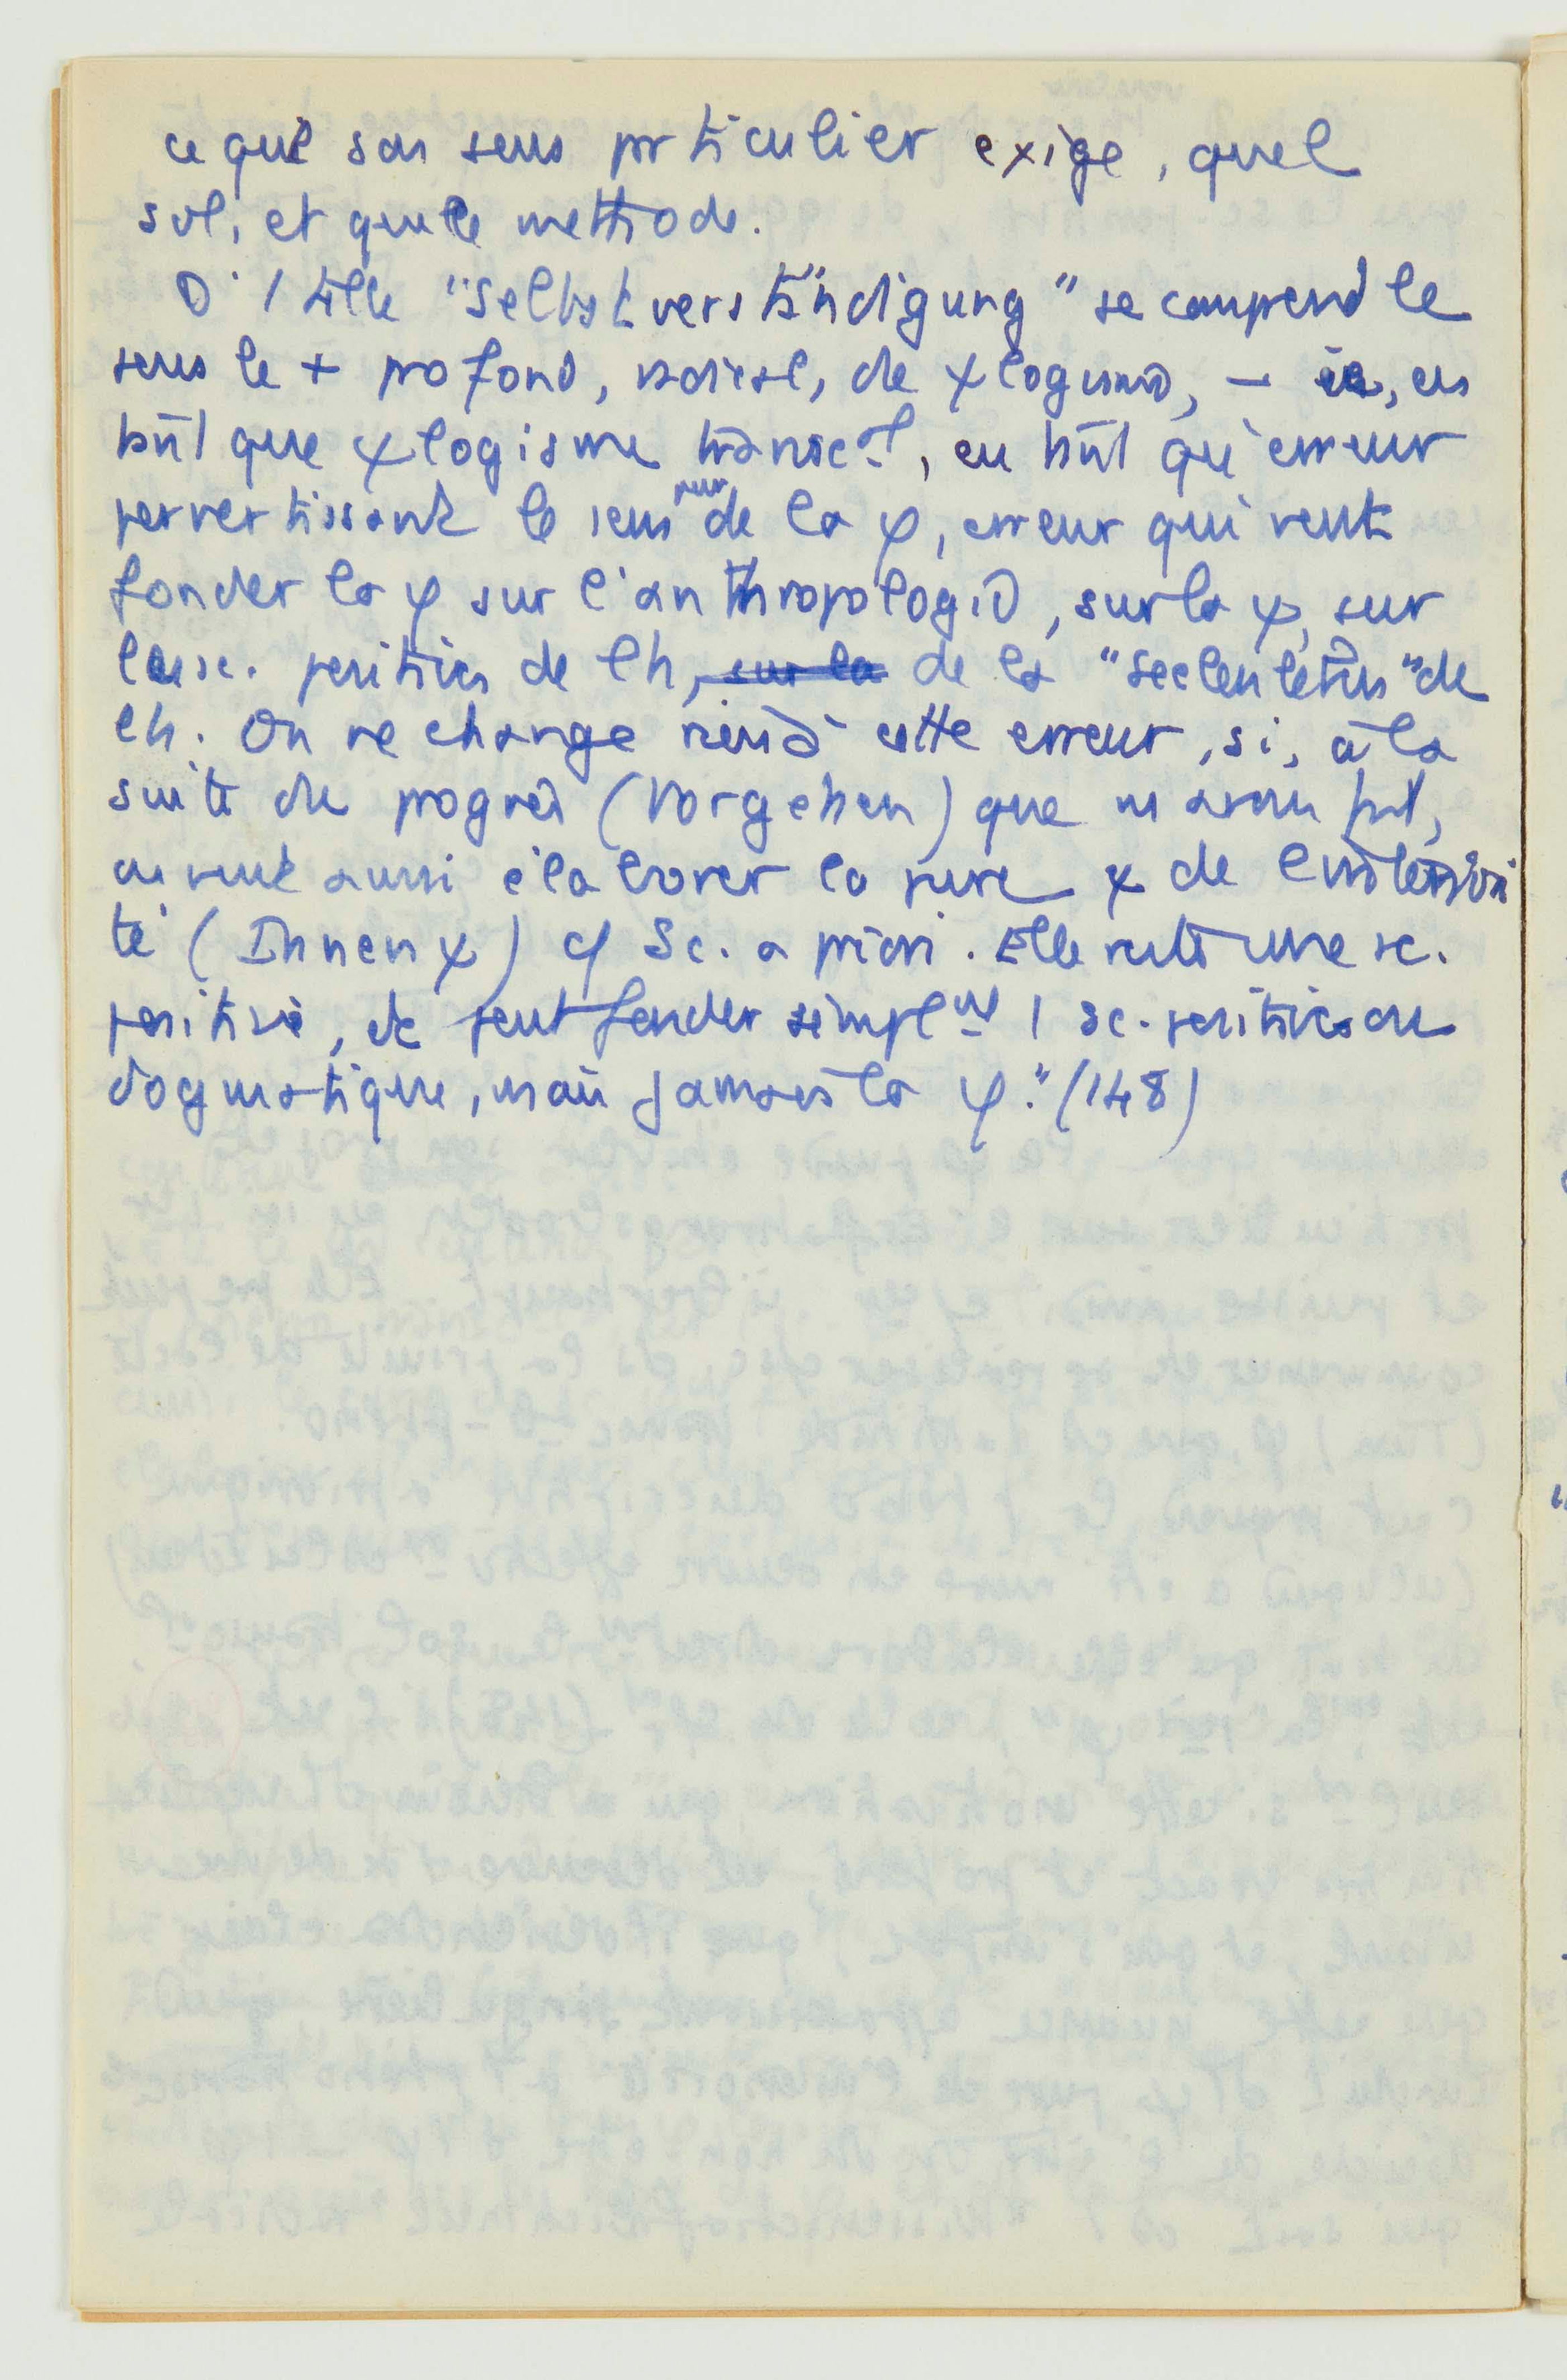 ce que son sens prticulier exige, quel
sol, et quelle methode.
D' 1 telle "Selbstverständigung" se comprend le
sens le + profond, radical, de ψlogisme, – ie, en
tant que ψlogisme transcal, en tant qu'erreur
pervertissant le sens pur de la φ, erreur qui veut
fonder la φ sur l'anthropologie, sur la ψ, sur
les sc. positives de lh, sur la de la "Seelenlebens" de
lh. On ne change rien à cette erreur, si, à la
suite du progrès (Vorgehen) que ns avons fait,
on veut aussi élaborer la pure ψ de l'intériori
té (Innenψ) cf Sc. a priori. Elle reste une sc.
positive, et peut fonder simplnt 1 sc. positive ou
dogmatique, mais jamais la φ." (148)